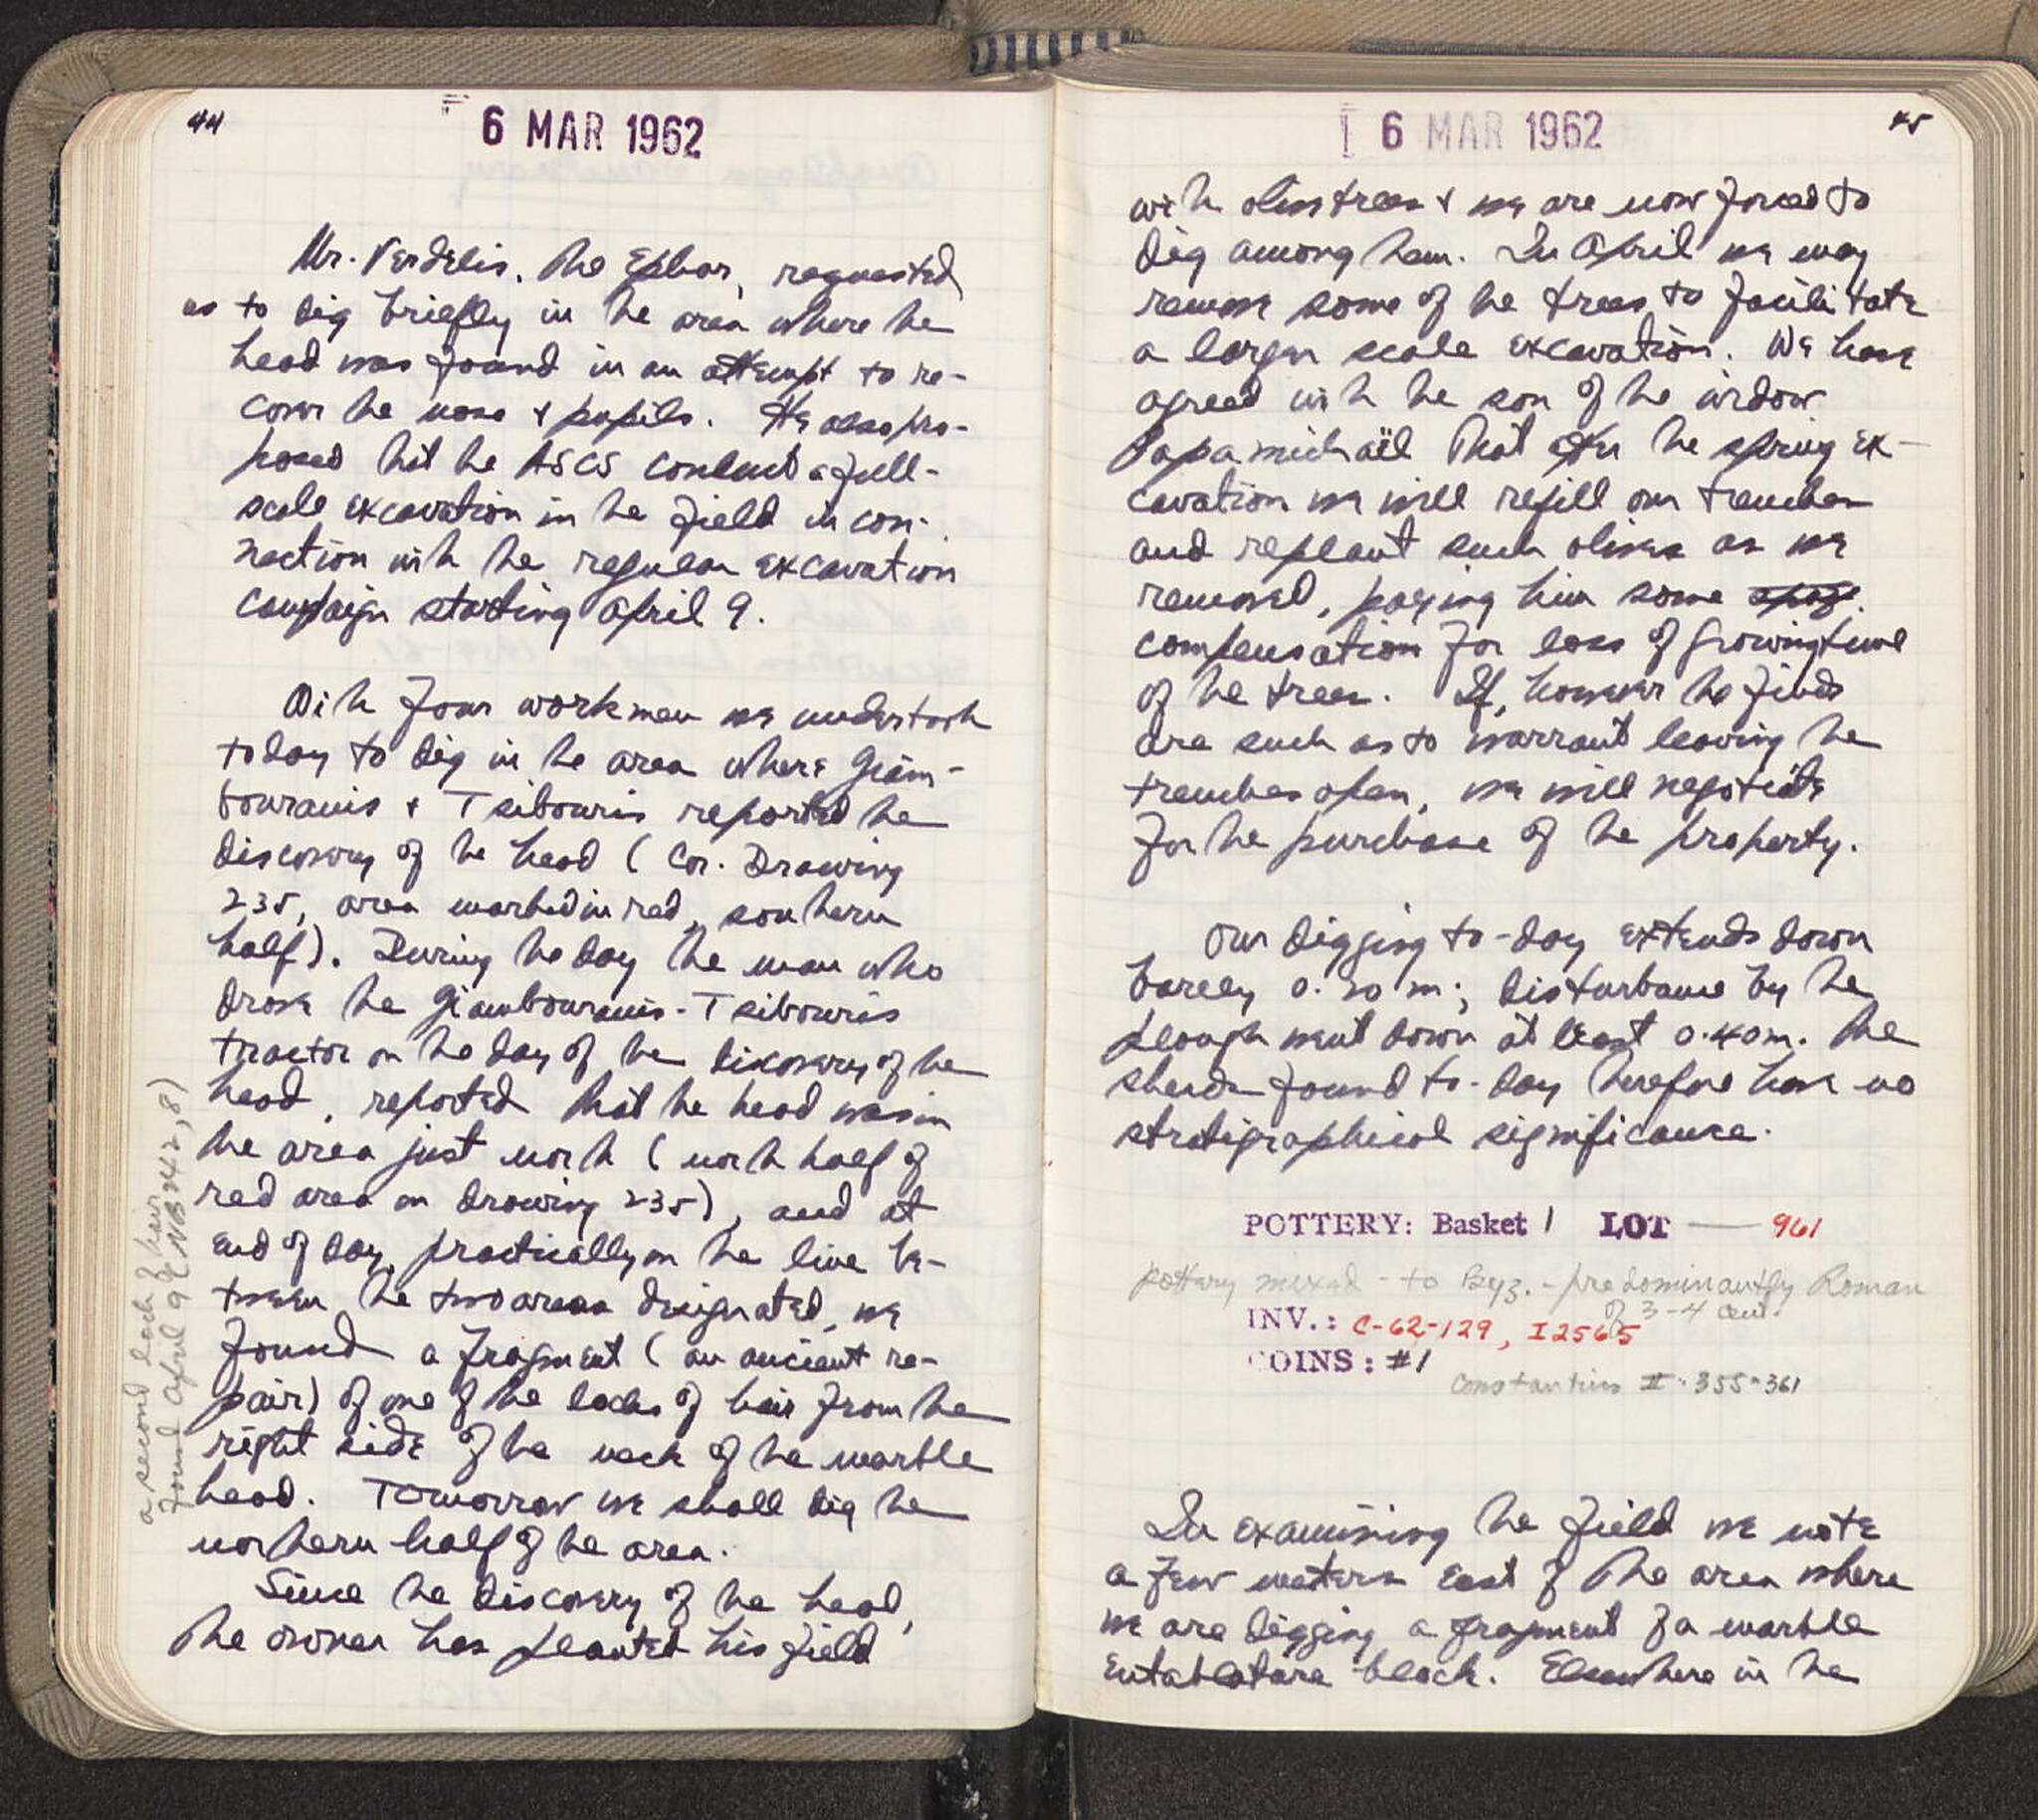 44
6 MAR 1962
Mr. Verdelis, the Ephor, requested
us to dig briefly in the area where the
head was found in an attempt to re-
cover the nose & pupils. He also pro-
posed that the ASCS conduct a full-
scale excavation in the field in con-
nection with the regular excavation
campaign starting April 9.
With four workmen we undertook
today to dig in the area where Giam-
bouranis & Tsibouris reported the
discovery of the head (Cor. Drawing
235, area marked in red, southern
half). During the day the man who
drove the Giambouranis-Tsibouris
tractor on the day of the discovery of the
head, reported that the head was in
the area just north (north half of
red area on drawing 235), and at
end of day, practically on the line be-
tween the two areas designated, we
found a fragment (an ancient re-
pair) of one of the locks of hair from the
right side of the neck of the marble
head. Tomorrow we shall dig the
northern half of the area.
Since the discovery of the head,
the owner has planted his field
a second lock of hair
found April 9 (NB 242, 8)
6 MAR 1962
45
with olive trees & we are now forced to
dig among them. In April we may
remove some of the trees to facilitate
a larger scale excavation. We have
agreed with the son of the widow
Papamichaïl that after the spring ex-
cavation we will refill our trenches
and replant such olives as we
removed, paying him some
compensation for loss of growing time
of the trees. If, however the finds
are such as to warrant leaving the
trenches open, we will negotiate
for the purchase of the property.
Our digging to-day extends down
barely 0.20 m; disturbance by the
plough went down at least 0.40m. The
sherds found to-day therefore have no
stratigraphical significance.
POTTERY: Basket 1 LOT — 961
pottery mixed - to Byz. - predominantly Roman
of 3-4 cent.
INV.: C-62-129, I2565
COINS: #1
Constantius II · 355-361
In examining the field we note
a few meters east of the area where
we are digging a fragment of a marble
entablature block. Elsewhere in the